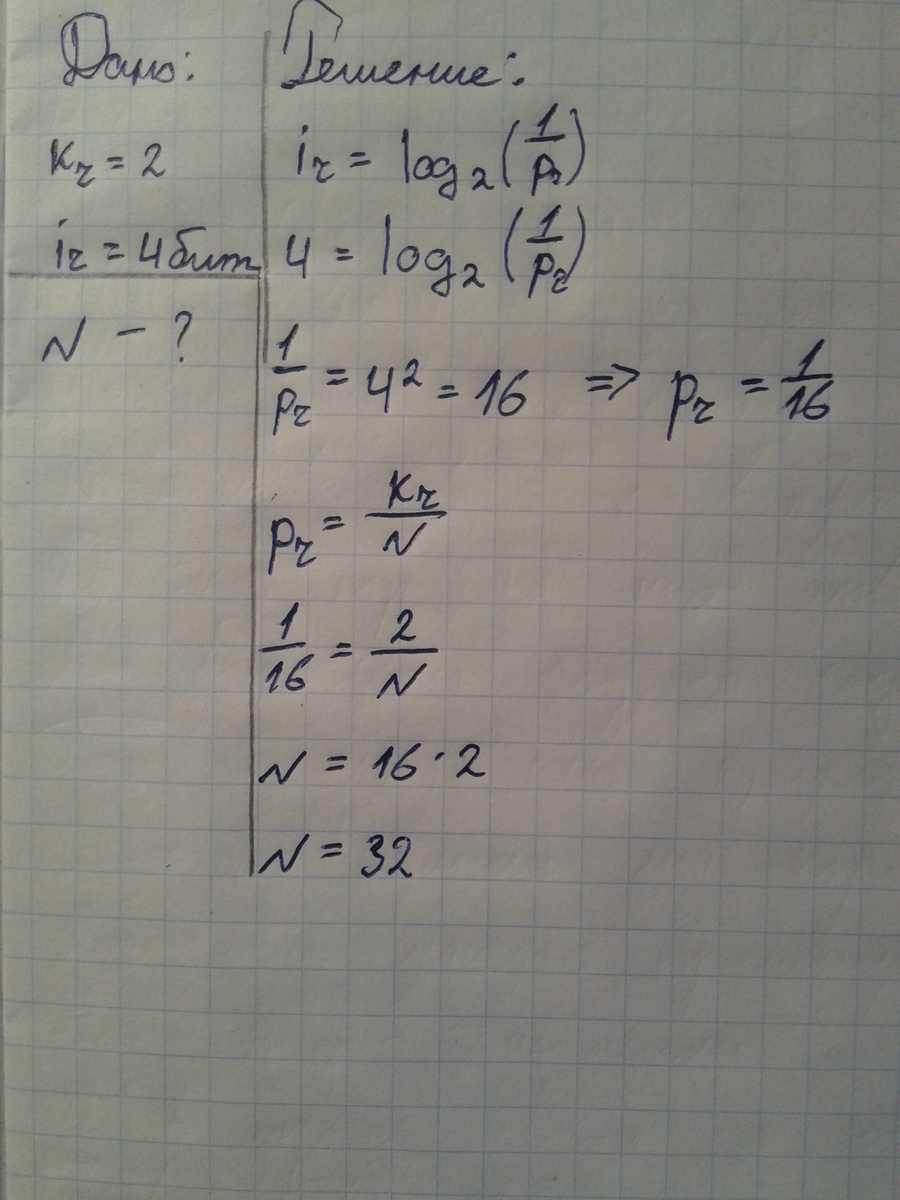 Дано:
Kч = 2
iч = 4 бит
N - ?
Решение:
iч = log₂(1/pч)
4 = log₂(1/pч)
1/pч = 4² = 16 => pч = 1/16
pч = Kч/N
1/16 = 2/N
N = 16 · 2
N = 32